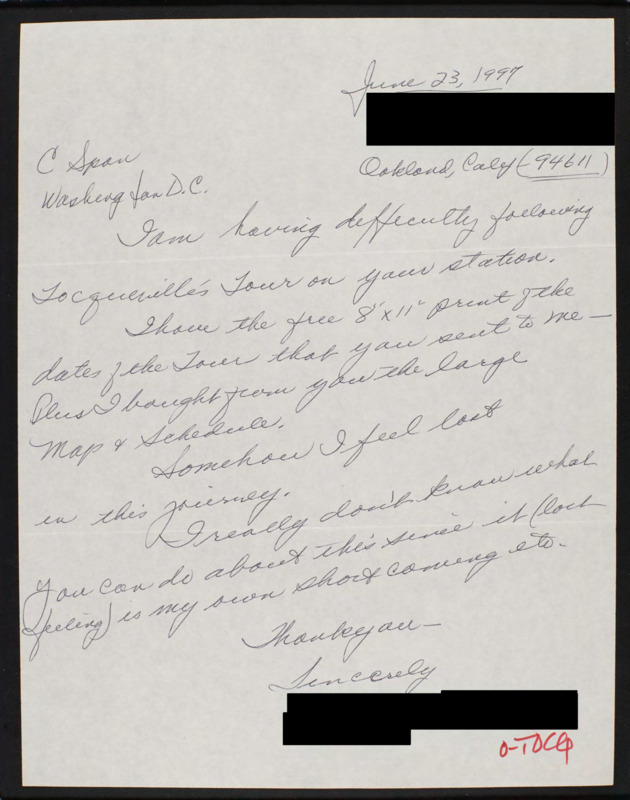 June 23, 1997
Oakland, Calif (94611)
C Span
Washington D.C.
I am having difficulty following
Tocqueville's Tour on your station.
I have the free 8"x11" print of the
dates of the Tour that you sent to me —
Plus I bought from you the large
Map & Schedule.
Somehow I feel lost
in this journey.
I really don't know what
you can do about this since it (lost
feeling) is my own short coming etc.
Thank you —
Sincerely
O-TOCQ